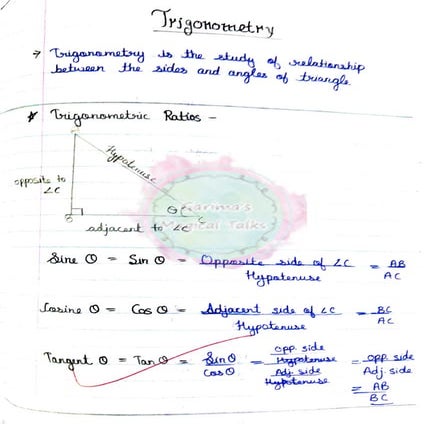 Trigonometry
→ Trigonometry is the study of relationship
between the sides and angles of triangle.
* Trigonometric Ratios -
Hypotenuse
opposite to
∠C
B
θ
C
adjacent to ∠C
Garima's
Magical Talks
Sine θ = Sin θ = Opposite side of ∠C / Hypotenuse = AB / AC
Cosine θ = Cos θ = Adjacent side of ∠C / Hypotenuse = BC / AC
Tangent θ = Tan θ = Sin θ / Cos θ = Opp. side / Hypotenuse / Adj. side / Hypotenuse = Opp. side / Adj. side
= AB / BC